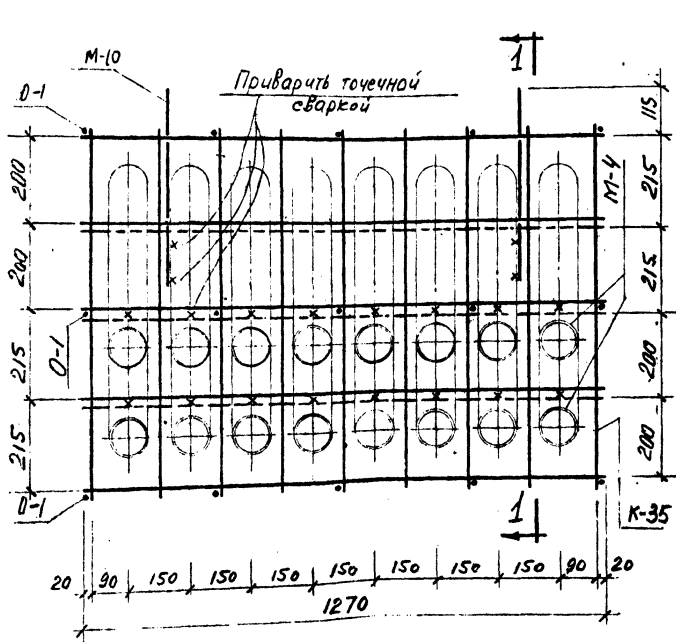 М-10
1
О-1
Приварить точечной
сваркой
115
200
215
М-4
200
215
О-1
215
200
215
200
О-1
1
К-35
20 90 150 150 150 150 150 150 150 90 20
1270